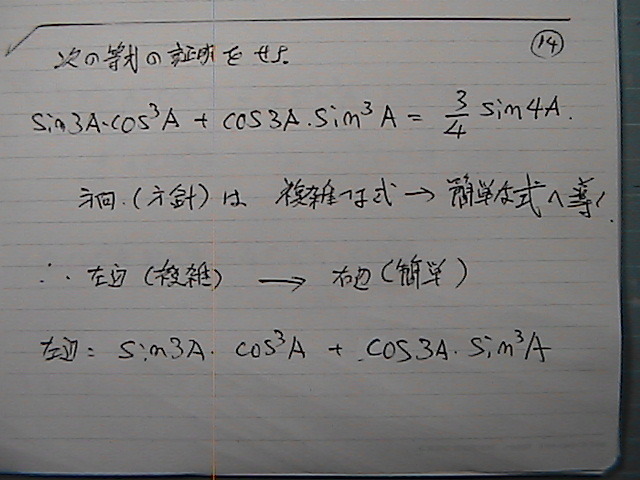 ⑭
次の等式の証明をせよ。
sin3A・cos³A + cos3A・sin³A = 3/4 sin4A.
方向.(方針)は 複雑な式→簡単な式へ導く.
∴ 左辺(複雑) → 右辺(簡単)
左辺= sin3A・cos³A + cos3A・sin³A